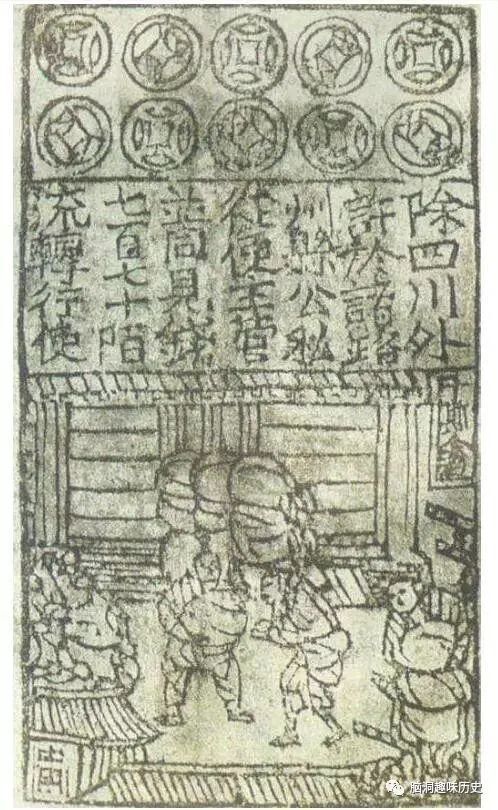 除四川外
許於諸路
州縣公私
從便主管
並同見錢
七百七十陌
流轉行使
脑洞趣味历史